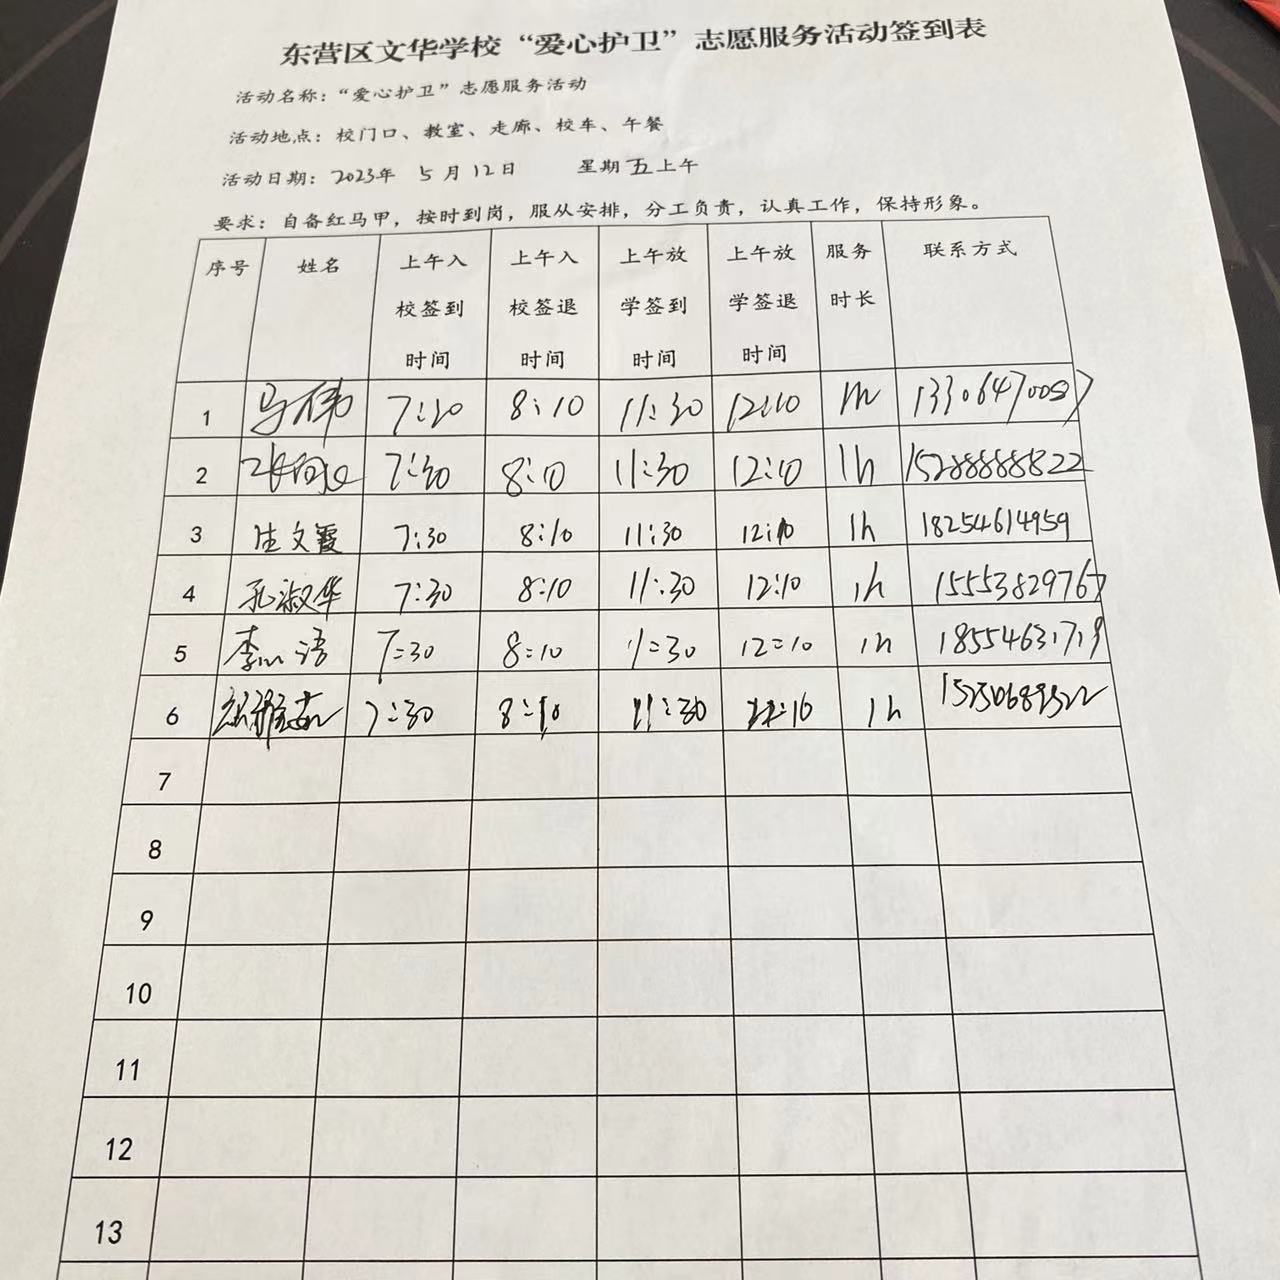 东营区文华学校“爱心护卫”志愿服务活动签到表
活动名称：“爱心护卫”志愿服务活动
活动地点：校门口、教室、走廊、校车、午餐
活动日期：2023年 5月12日 星期五上午
要求：自备红马甲，按时到岗，服从安排，分工负责，认真工作，保持形象。
序号 姓名 上午入校签到时间 上午入校签退时间 上午放学签到时间 上午放学签退时间 服务时长 联系方式
1 马伟 7:30 8:10 11:30 12:10 1h
2 7:30 8:10 11:30 12:10 1h 15288888822
3 生文霞 7:30 8:10 11:30 12:10 1h 18254614959
4 孔淑华 7:30 8:10 11:30 12:10 1h 15553829767
5 7:30 8:10 11:30 12:10 1h 18554631719
6 7:30 8:10 11:30 12:10 1h
7
8
9
10
11
12
13